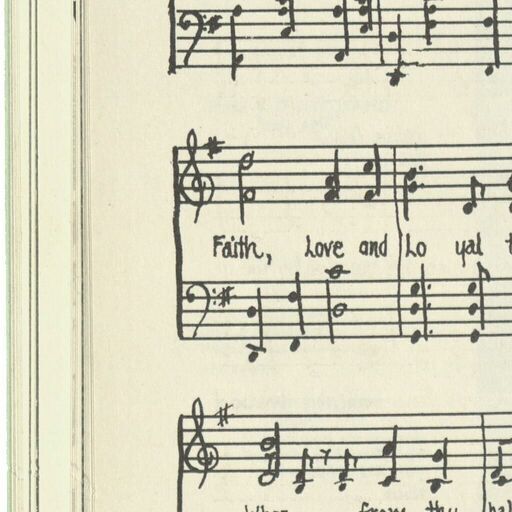 Faith, Love and Lo yal
from thy